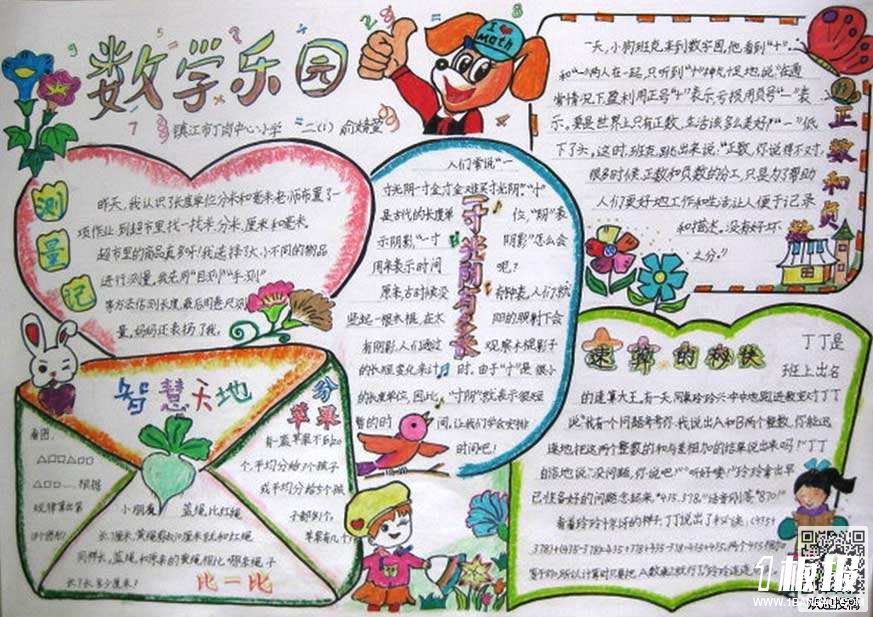 数学乐园
I ♥ Math
镇江市丁岗中心小学 二(1)
测量记
昨天,我认识了长度单位分米和毫米,老师布置了一
项作业:到超市里找一找米、分米、厘米和毫米。
超市里的商品真多呀!我选择了大小不同的物品
进行测量,我先用"目测""手测"
等方法估测长度,最后用卷尺测
量,妈妈还表扬了我。
一寸光阴有多长
人们常说"一
寸光阴一寸金,寸金难买寸光阴","寸"
是古代的长度单位,"阴"表
示阴影,"一寸阴影"怎么会
用来表示时间呢?
原来,古时候没有钟表,人们就
竖起一根木棍,在太阳的照射下会
有阴影,人们通过观察木棍影子
的长短变化来计时,由于"寸"是很小
的长度单位,因此,"寸阴"就表示很短
暂的时间,让我们学会安排
时间吧!
正数和负数
一天,小狗班克来到数字园,他看到"+"
和"-"俩人在一起,只听到"+"神气十足地说:"在通
常情况下,盈利用正号"+"表示,亏损用负号"-"表
示。要是世界上只有正数,生活该多么美好!""-"低
下了头。这时,班克跳出来说:"正数,你说得不对,
很多时候,正数和负数的分工,只是为了帮助
人们更好地工作和生活,让人便于记录
和描述,没有好坏
之分。"
智慧天地
分苹果
看图,
△□○△□○
△□○……根据
规律算出第
18个图形
小朋友,蓝绳比红绳
长7厘米,黄绳剪掉10厘米就和红绳
同样长,蓝绳和原来的黄绳相比,哪条绳子
长?长多少厘米?
比一比
有一篮苹果不到20
个,平均分给3个孩子
或平均分给5个孩
子都剩1个,
苹果有几个?
速算的秘诀
丁丁是
班上出名
的速算大王,有一天,同桌玲玲兴冲冲地跑进教室对丁丁
说:"我有个问题考考你,我说出A和B两个整数,你能迅
速地把这两个整数的和与差相加的结果说出来吗?"丁丁
自信地说:"没问题,你说吧!""听好喽!"玲玲拿出早
已准备好的问题念起来,"415,378。"话音刚落,"830!"
看着玲玲十分讶的样子,丁丁说出了秘诀:(415+
378)+(415-378)=415+378+415-378=415+415,两个415相加
1板报
WWW.1BANBAO.COM